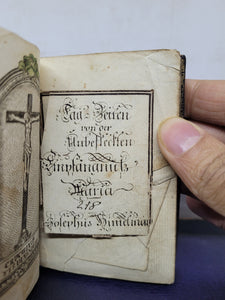 Tag-Zeiten
von der
Unbefleckten
Empfängniß
Mariä
218
Josephus Himelmay